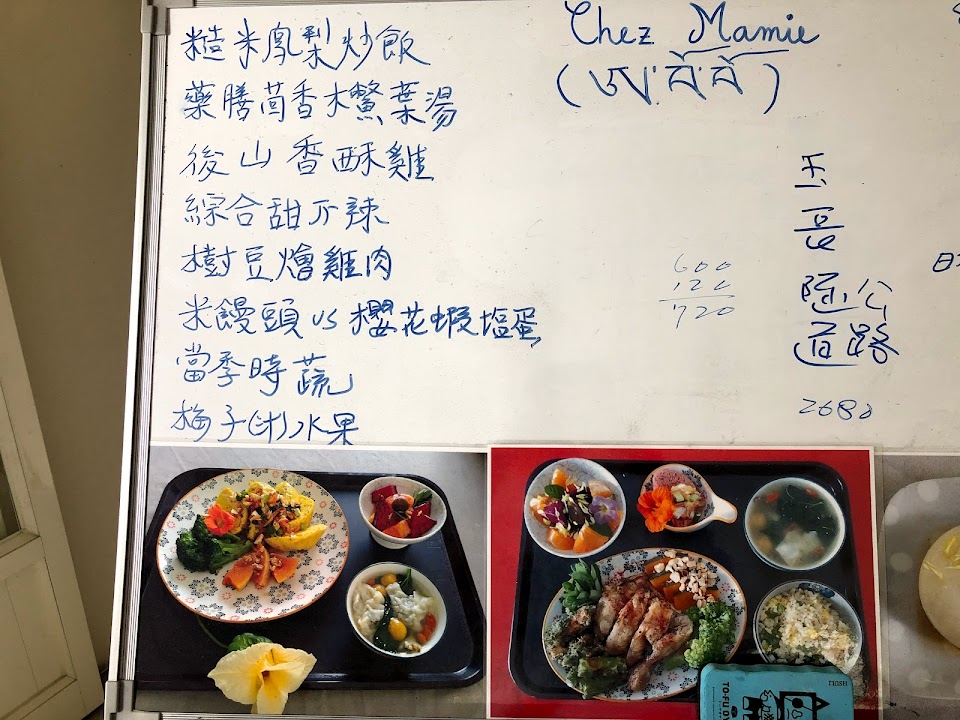 糙米鳳梨炒飯
藥膳茴香木鱉葉湯
後山香酥雞
綜合甜不辣
樹豆燴雞肉
米饅頭 vs 櫻花蝦塩蛋
當季時蔬
梅子(汁)水果
Chez Mamie
600
120
720
玉長隧道
公路
2680
TO-FU